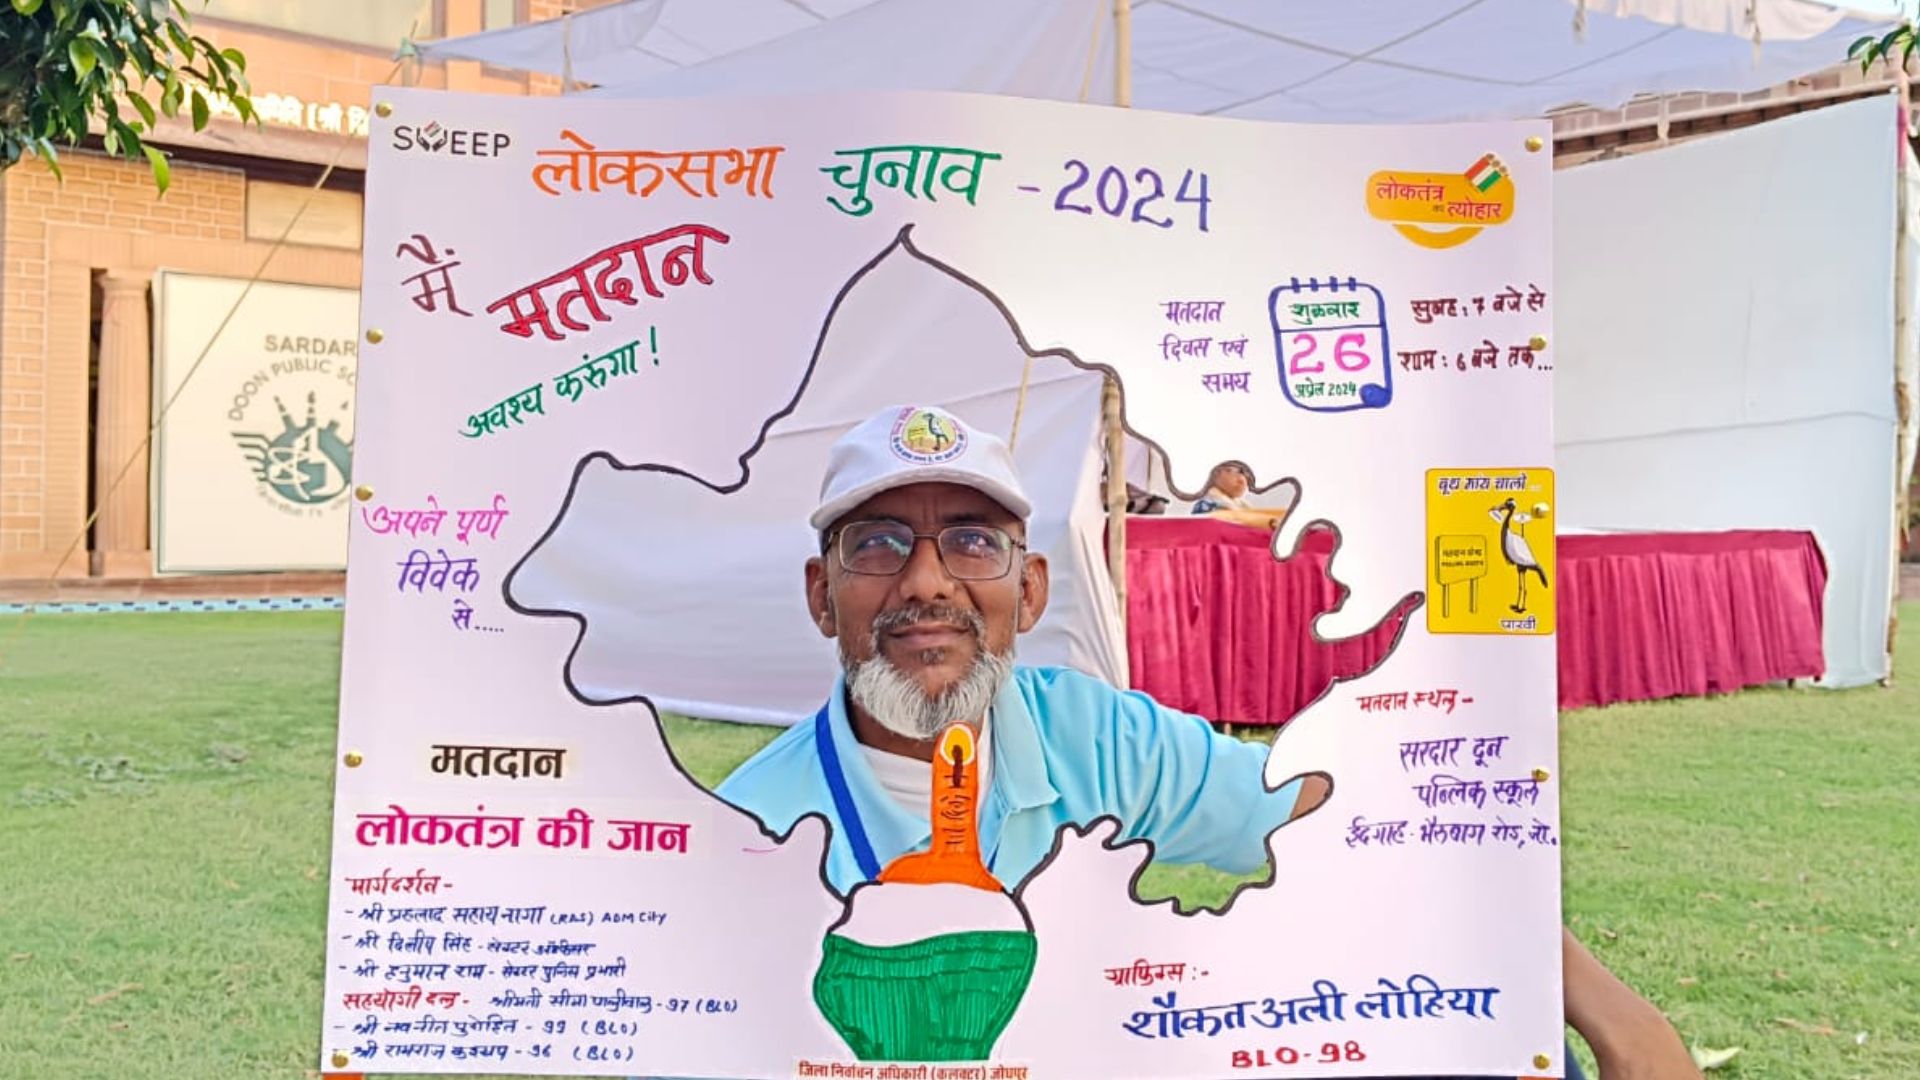 SWEEP
लोकसभा चुनाव - 2024
लोकतंत्र
का त्योहार
मैं मतदान
अवश्य करुंगा!
मतदान
दिवस एवं
समय
शुक्रवार
26
अप्रेल 2024
सुबह: 7 बजे से
शाम: 6 बजे तक...
SARDAR
DOON PUBLIC
अपने पूर्ण
विवेक
से.....
बूथ मांय चालो
मतदान केन्द्र
POLLING BOOTH
पारवी
मतदान स्थल -
सरदार दून
पब्लिक स्कूल
ईदगाह - भैरुबाग रोड, जो.
मतदान
लोकतंत्र की जान
मार्गदर्शन -
- श्री प्रहलाद सहाय नागा (RAS) ADM City
- श्री दिलीप सिंह - सेक्टर ऑफिसर
- श्री हनुमान राम - सेक्टर पुलिस प्रभारी
सहयोगी दल - श्रीमती सीमा पालीवाल - 97 (BLO)
- श्री नवनीत पुरोहित - 99 (BLO)
- श्री रामराज कश्यप - 96 (BLO)
ग्राफिक्स :-
शौकत अली लोहिया
BLO-98
जिला निर्वाचन अधिकारी (कलक्टर) जोधपुर